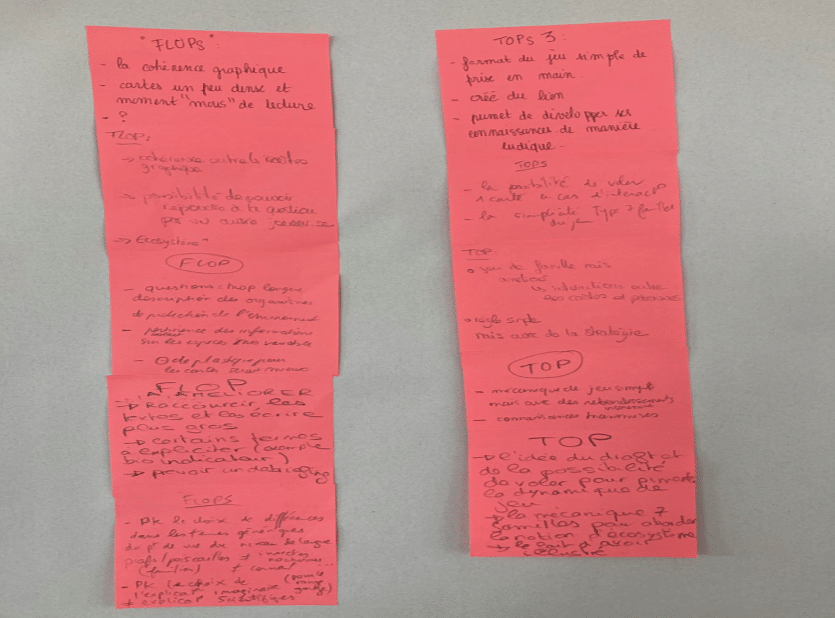 "FLOPS":
- la cohérence graphique
- cartes un peu dense et
moment "mous" de lecture
- ?
FLOP:
-> cohérence entre les cartes
graphique
-> possibilité de pouvoir
répondre à la question
par un autre
-> Ecosystème
FLOP
- questions: trop longue
description des organismes
de protection de l'environnement
- pertinence des informations
sur les espèces
- de plastique pour
les cartes
FLOP
"A AMELIORER
-> Raccourcir les
textes et les écrire
plus gros
-> certains termes
à expliciter (exemple
bio indicateur)
-> prévoir un debriefing
FLOPS
- PK le choix de différences
dans les termes génériques
du pt de vue du niveau de langue
profs/
(familier) ≠
- PK le choix de
l'explicat° imaginaire
≠ explicat° scientifiques
TOPS 3:
- format du jeu simple de
prise en main.
- créé du lien
- permet de développer ses
connaissances de manière
ludique.
TOPS
- la possibilité de voler
1 carte en cas d'interact°
- la simplicité Type 7 familles
du jeu
TOP
• jeu de famille mais
amélioré
les interactions entre
les cartes
• règle simple
mais avec de la stratégie
TOP
- mécanique de jeu simple
mais avec des rebondissements
- connaissances transmises
TOP
-> l'idée du
de la possibilité
de voler pour pimenter
la dynamique de
jeu
-> la mécanique 7
familles pour aborder
la notion d'écosystème
-> le fait d'avoir
illustré